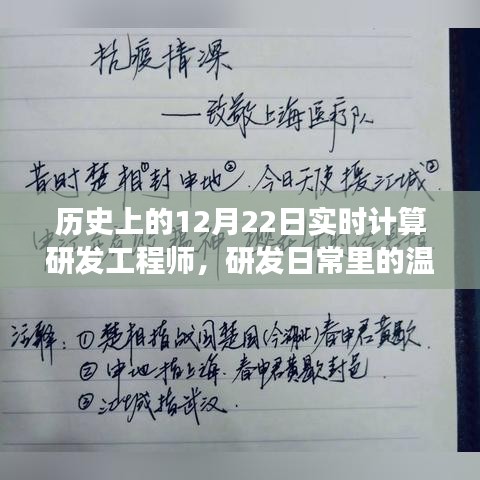 抗疫情深
——致敬上海医疗队
昔时楚相①封申地②,今日天使援江城③.
历史上的12月22日实时计算
研发工程师，研发日常里的温
注释:①楚相指战国楚国(今湖北)春申君黄歇.
②申地指上海.春申君黄歇封邑
③江城指武汉.